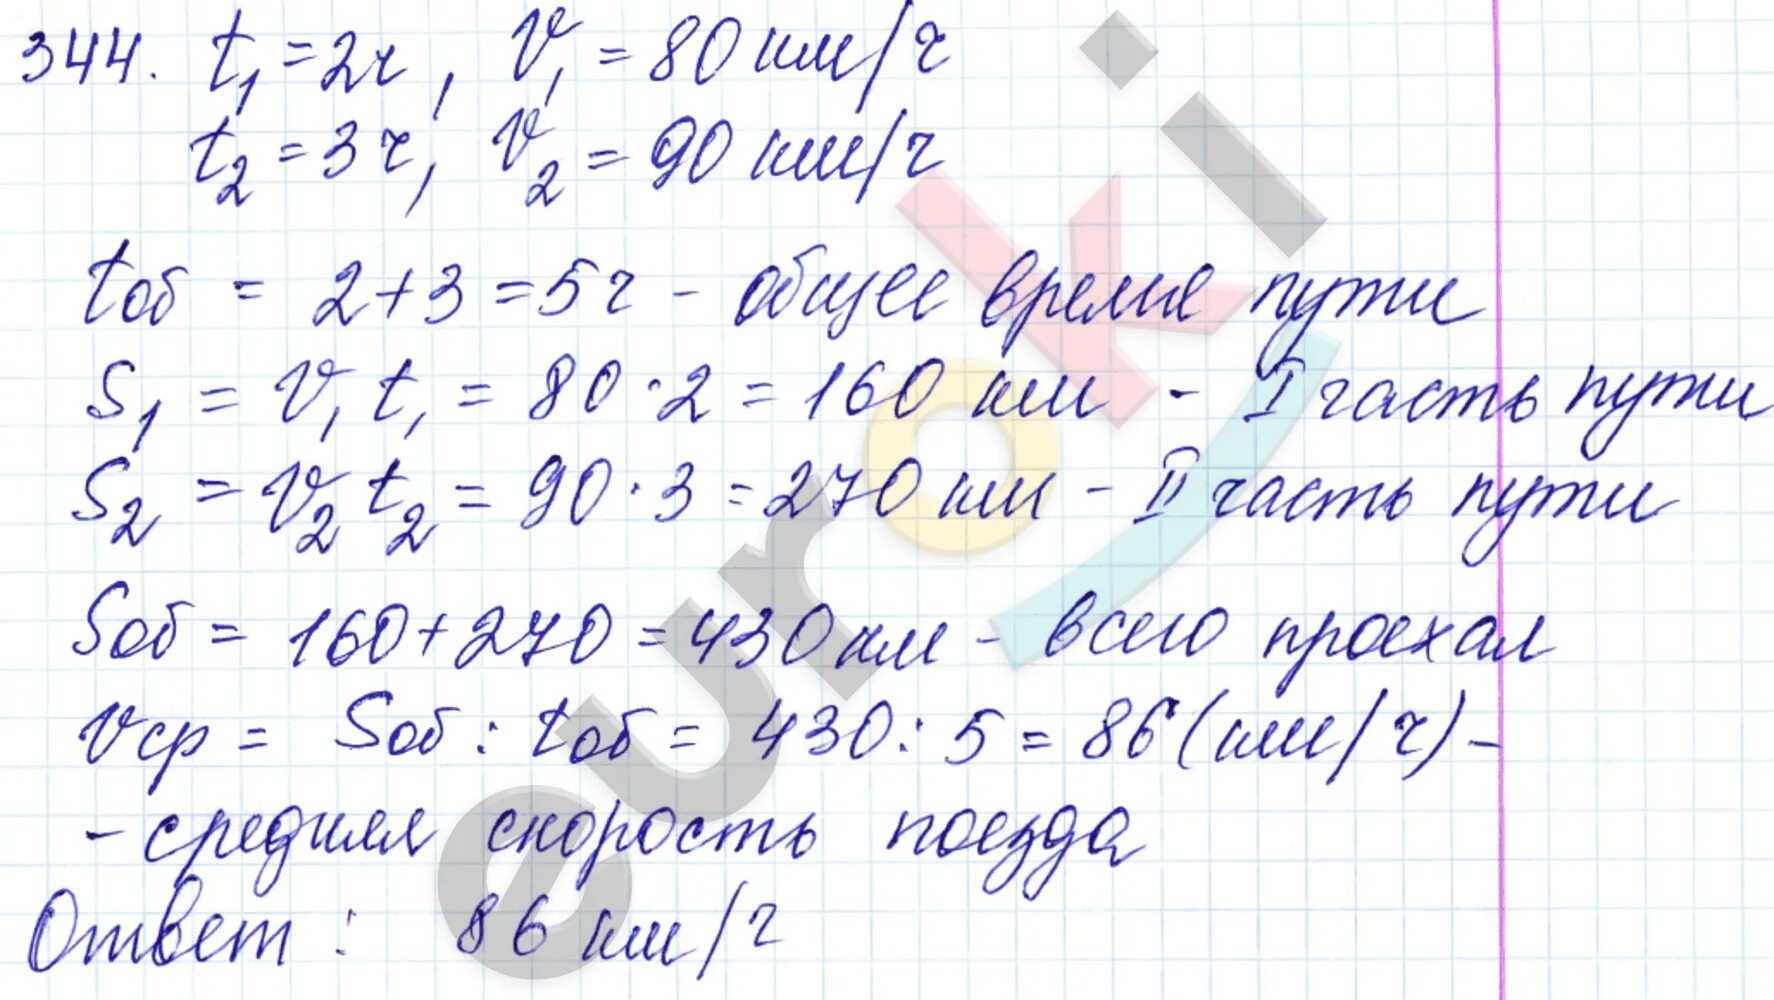 344. t₁ = 2ч, V₁ = 80 км/ч
t₂ = 3ч, V₂ = 90 км/ч
tоб = 2+3 = 5ч - общее время пути
S₁ = V₁ t₁ = 80 · 2 = 160 км - I часть пути
S₂ = V₂ t₂ = 90 · 3 = 270 км - II часть пути
Sоб = 160 + 270 = 430 км - всего проехал
Vср = Sоб : tоб = 430 : 5 = 86 (км/ч) -
- средняя скорость поезда
Ответ : 86 км/ч
euroki